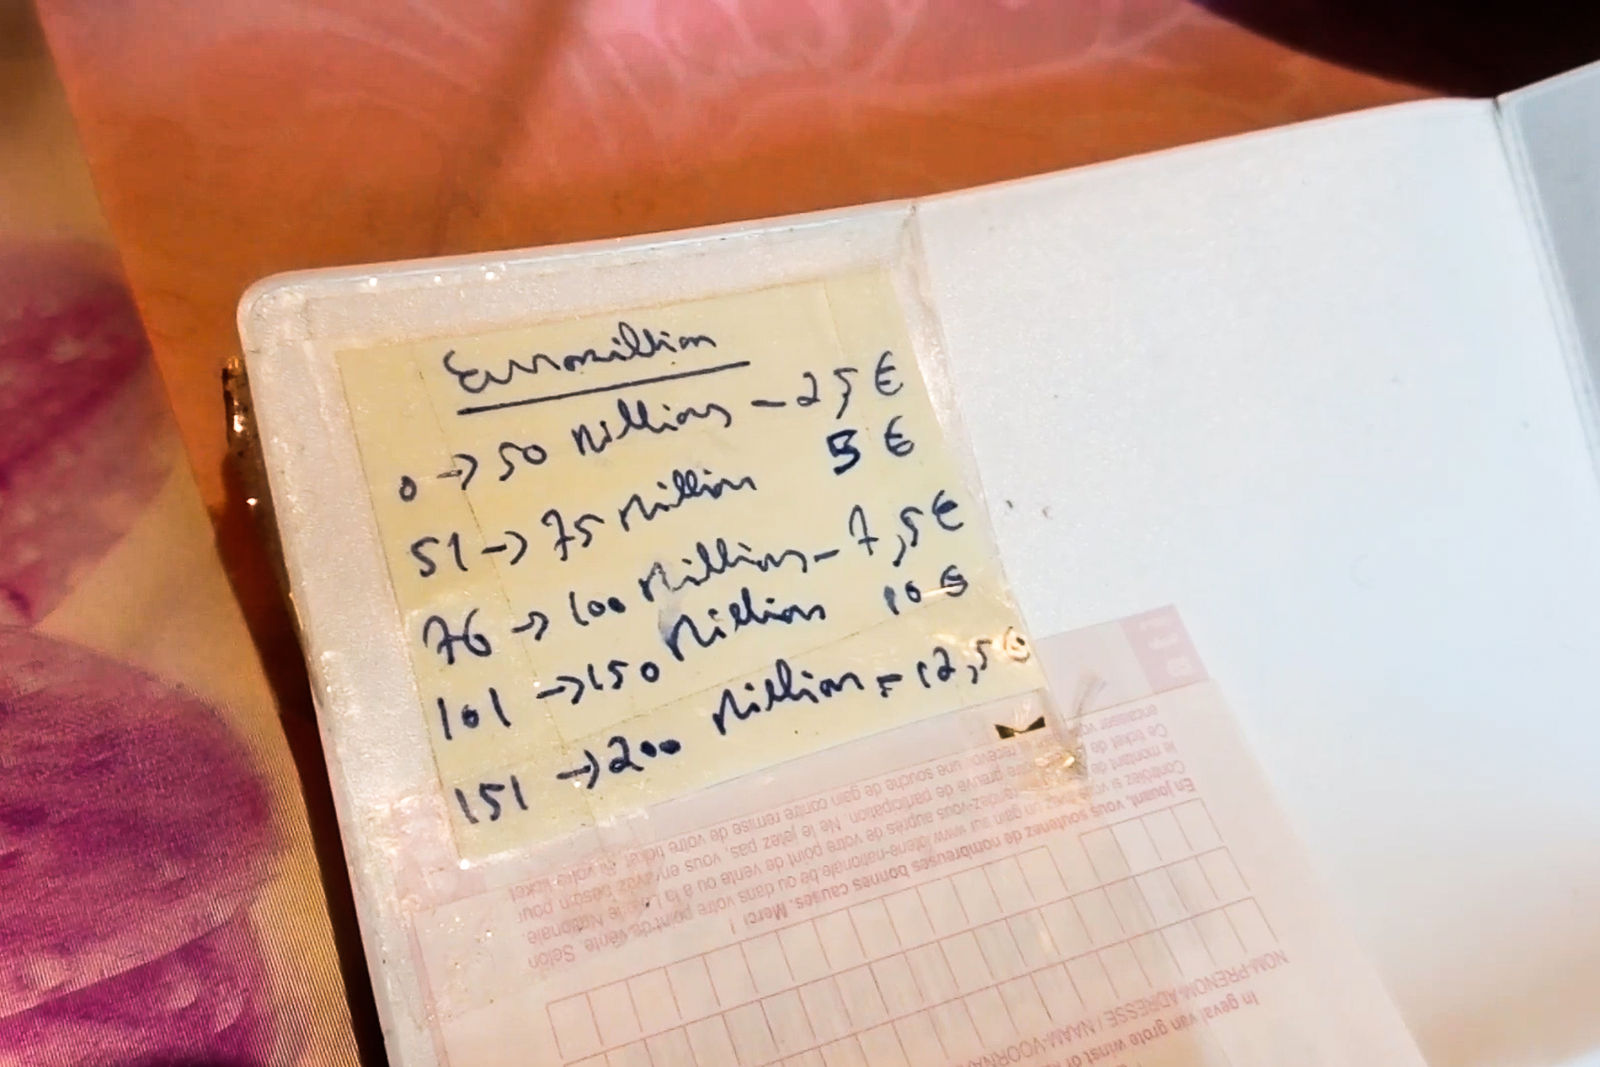 Euromillion
0 → 50 Millions – 2,5 €
51 → 75 Million 5 €
76 → 100 Millions – 7,5 €
101 → 150 Millions 10 €
151 → 200 Million = 12,5 €
En jouant, vous soutenez de nombreuses bonnes causes. Merci !
Contrôlez si vous gain sur www.loterie-nationale.be ou dans votre point de vente. Selon
le montant de rendez-vous auprès de votre point de vente ou à la Loterie Nationale.
Ce ticket de preuve de participation. Ne le jetez pas, vous en avez besoin pour
encaisser recevoir une souche de gain contre remise de votre ticket
NOM-PRENOM-ADRESSE / NAAM-VOORNA
In geval van grote winst of